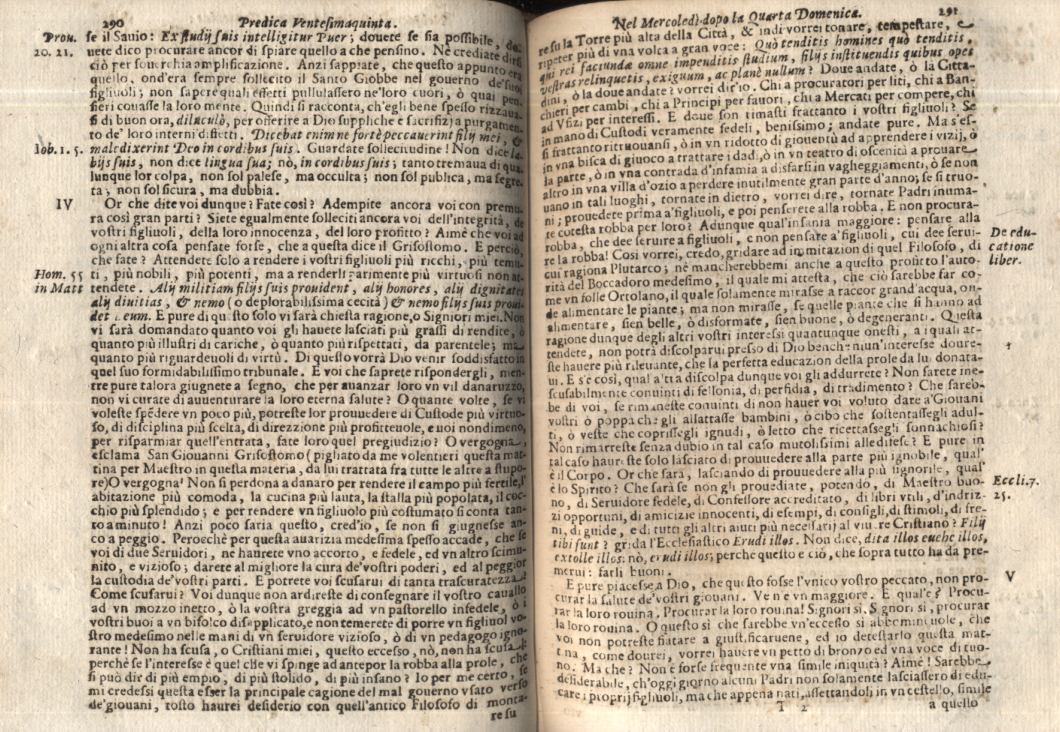 290 Predica Ventesimaquinta.
Prou. se il Sauio: Ex studijs suis intelligitur Puer; douete se sia possibile, do-
20. 21. uete dico procurare ancor di spiare quello a che pensino. Nè crediate dirsi
ciò per souerchia amplificazione. Anzi sappiate, che questo appunto era
quello, ond'era sempre sollecito il Santo Giobbe nel gouerno de'suoi
figliuoli; non sapere quali effetti pullulassero ne'loro cuori, ò quai pen-
sieri couasse la loro mente. Quindi si racconta, ch'egli bene spesso rizzaua-
si di buon ora, diluculò, per offerire a Dio suppliche e sacrifizj a purgamen-
to de' loro interni difetti. Dicebat enim ne fortè peccauerint filij mei, &
Iob. 1. 5. maledixerint Deo in cordibus suis. Guardate sollecitudine! Non dice la-
bijs suis, non dice lingua sua; nò, in cordibus suis; tanto tremaua di qua-
lunque lor colpa, non sol palese, ma occulta; non sol publica, ma segre-
ta; non sol sicura, ma dubbia.
IV Or che dite voi dunque? Fate così? Adempite ancora voi con premu-
ra così gran parti? Siete egualmente solleciti ancora voi dell'integrità, de'
vostri figliuoli, della loro innocenza, del loro profitto? Aimè che voi ad
ogni altra cosa pensate forse, che a questa dice il Grisostomo. E perciò,
che fate? Attendete solo a rendere i vostri figliuoli più ricchi, più temu-
Hom. 55 ti, più nobili, più potenti, ma a renderli parimente più virtuosi non at-
in Matt tendete. Alij militiam filijs suis prouident, alij honores, alij dignitates
alij diuitias, & nemo (o deplorabilissima cecità) & nemo filijs suis proui-
det Deum. E pure di questo solo vi sarà chiesta ragione, o Signiori miei. Non
vi sarà domandato quanto voi gli hauete lasciati più grassi di rendite, ò
quanto più illustri di cariche, ò quanto più rispettati, da parentele; ma
quanto più riguardeuoli di virtù. Di questo vorrà Dio venir soddisfatto in
quel suo formidabilissimo tribunale. E voi che saprete rispondergli, men-
tre pure talora giugnete a segno, che per auanzar loro vn vil danaruzzo,
non vi curate di auuenturare la loro eterna salute? O quante volte, se vi
voleste spēdere vn poco più, potreste lor prouuedere di Custode più virtuo-
so, di disciplina più scelta, di direzzione più profitteuole, e uoi nondimeno,
per risparmiar quell'entrata, fate loro quel pregiudizio? O vergogna,
esclama San Giouanni Grisostomo (pigliato da me volentieri questa mat-
tina per Maestro in questa materia, da lui trattata fra tutte le altre a stupo-
re) O vergogna! Non si perdona a danaro per rendere il campo più fertile, l'
abitazione più comoda, la cucina più lauta, la stalla più popolata, il coc-
chio più splendido; e per rendere vn figliuolo più costumato si conta tan-
to a minuto! Anzi poco saria questo, cred'io, se non si giugnesse an-
co a peggio. Perochè per questa auarizia medesima spesso accade, che se
voi di due Seruidori, ne haurete vno accorto, e fedele, ed vn altro scimu-
nito, e vizioso; darete al migliore la cura de'vostri poderi, ed al peggior
la custodia de'vostri parti. E potrete voi scusarui di tanta trascuratezza?
Come scusarui? Voi dunque non ardireste di consegnare il vostro cauallo
ad vn mozzo inetto, ò la vostra greggia ad vn pastorello infedele, ò i
vostri buoi a vn bifolco disapplicato, e non temerete di porre vn figliuol vo-
stro medesimo nelle mani di vn seruidore vizioso, ò di vn pedagogo igno-
rante! Non ha scusa, o Cristiani miei, questo eccesso, nò, non ha scusa,
perchè se l'interesse è quel che vi spinge ad antepor la robba alla prole, che
si può dir di più empio, di più stolido, di più insano? Io per me certo, se
mi credessi questa esser la principale cagione del mal gouerno vsato verso
de'giouani, tosto haurei desiderio con quell'antico Filosofo di monta-
re su
Nel Mercoledì dopo la Quarta Domenica. 291
re su la Torre più alta della Città, & indi vorrei tonare, tempestare, e
ripeter più di vna volta a gran voce: Quò tenditis homines quò tenditis,
qui rei facundæ omne impenditis studium, filijs instituendis quibus opes
vestras relinquetis, exiguum, ac planè nullum? Doue andate, ò la Citta-
dini, ò la doue andate? vorrei dir'io. Chi a procuratori per liti, chi a Ban-
chieri per cambi, chi a Principi per fauori, chi a Mercati per compere, chi
ad Vfizi per interessi. E doue son rimasti frattanto i vostri figliuoli? Se
in mano di Custodi veramente fedeli, benissimo; andate pure. Ma s'es-
si frattanto ritruouansi, ò in vn ridotto di giouentù ad apprendere i vizij, ò
in vna bisca di giuoco a trattare i dadi, ò in vn teatro di oscenità a prouare
la parte, ò in vna contrada d'infamia a disfarsi in vagheggiamenti, ò se non
altro in vna villa d'ozio a perdere inutilmente gran parte d'anno; se si truo-
uano in tali luoghi, tornate in dietro, vorrei dire, tornate Padri inuma-
ni; prouedete prima a'figliuoli, e poi penserete alla robba. E non procura-
te cotesta robba per loro? Adunque qual'insania maggiore: pensare alla
robba, che dee seruire a figliuoli, e non pensare a'figliuoli, cui dee serui- De edu-
re la robba! Così vorrei, credo, gridare ad immitazion di quel Filosofo, di catione
cui ragiona Plutarco; nè mancherebbemi anche a questo profitto l'auto- liber.
rità del Boccadoro medesimo, il quale mi attesta, che ciò sarebbe far co-
me vn folle Ortolano, il quale solamente mirasse a raccor grand'acqua, on-
de alimentare le piante; ma non mirasse, se quelle piante che si hanno ad
alimentare, sien belle, ò disformate, sien buone, ò degeneranti. Questa
ragione dunque degli altri vostri interessi quantunque onesti, a i quali at-
tendete, non potrà discolparui presso di Dio benche niun'interesse doure-
ste hauere più rileuante, che la perfetta educazion della prole da lui donata-
ui. E s'è così, qual'altra discolpa dunque voi gli addurrete? Non sarete ine-
scusabilmente conuinti di fellonia, di perfidia, di tradimento? Che sareb-
be di voi, se rimaneste conuinti di non hauer voi voluto dare a'Giouani
vostri ò poppa che gli allattasse bambini, ò cibo che sostentassegli adul-
ti, ò veste che coprissegli ignudi, ò letto che ricettassegli sonnachiosi?
Non rimarreste senza dubio in tal caso mutolissimi alle difese? E pure in
tal caso haureste solo lasciato di prouuedere alla parte più ignobile, qual'
è il Corpo. Or che sarà, lasciando di prouuedere alla più signorile, qual'
è lo Spirito? Che sarà se non gli prouediate, potendo, di Maestro buo- Eccli. 7.
no, di Seruidore fedele, di Confessore accreditato, di libri vtili, d'indriz- 25.
zi opportuni, di amicizie innocenti, di esempi, di consigli, di stimoli, di fre-
ni, di guide, e di tutti gli altri aiuti più necessarij al viuere Cristiano? Filij
tibi sunt? grida l'Ecclesiastico Erudi illos. Non dice, dita illos euehe illos,
extolle illos: nò, erudi illos; perche questo e ciò, che sopra tutto ha da pre-
merui: farli buoni.
E pure piacesse a Dio, che questo fosse l'vnico vostro peccato, non pro- V
curar la salute de'vostri giouani. Ve n'è vn maggiore. E qual'è? Procu-
rar la loro rouina. Procurar la loro rouina! Signori sì. Signori sì, procurar
la loro rouina. O questo sì che sarebbe vn'eccesso sì abbomineuole, che
voi non potreste fiatare a giustificaruene, ed io detestarlo questa mat-
tina, come dourei, vorrei hauere vn petto di bronzo ed vna voce di tuo-
no. Ma che? Non è forse frequente vna simile iniquità? Aimè! Sarebbe
desiderabile, ch'oggi giorno alcuni Padri non solamente lasciassero di edu-
care i proprij figliuoli, ma che appena nati, assettandoli in vn cestello, simile
T 2 a quello